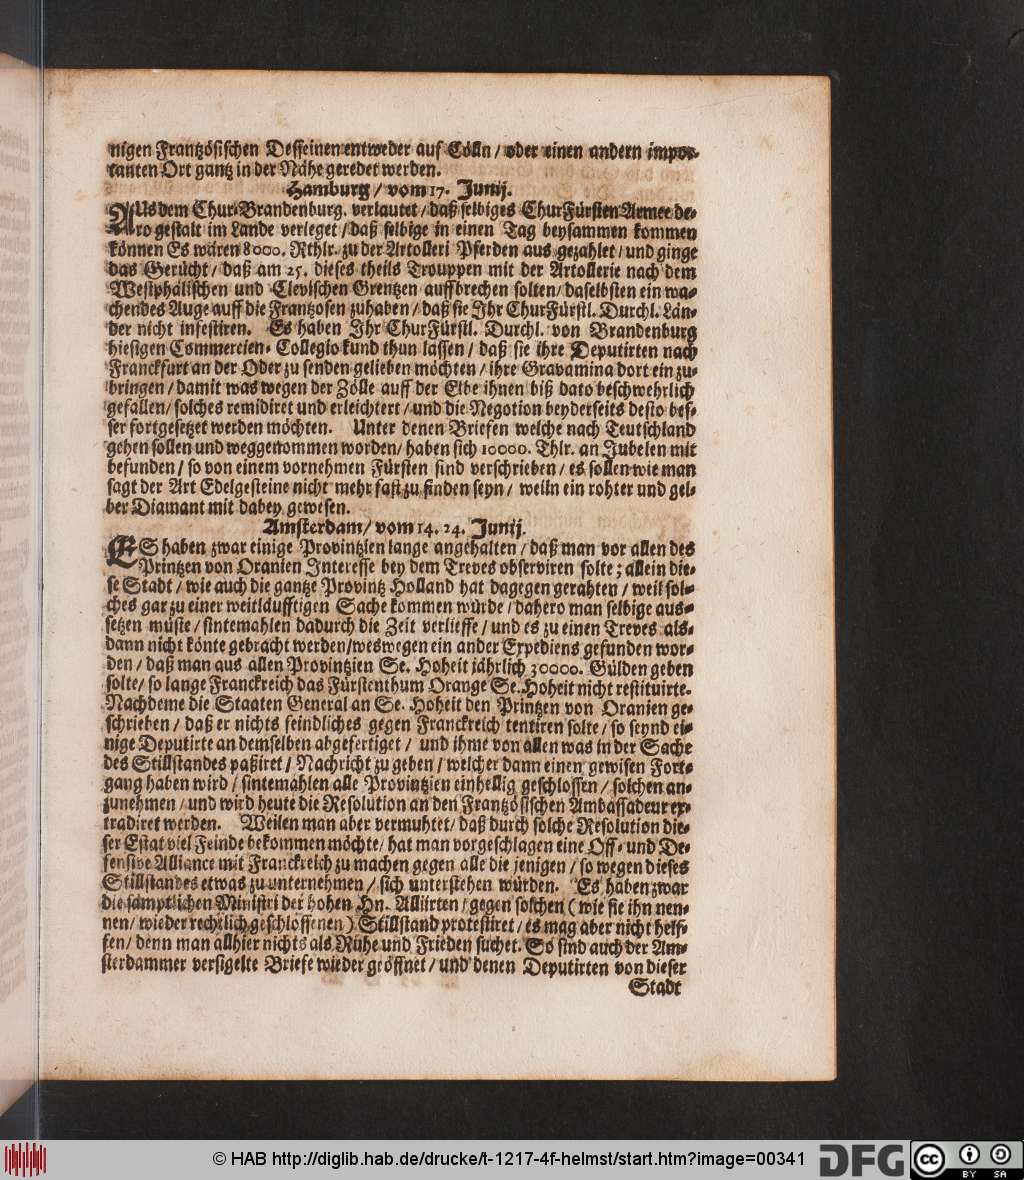 nigen Frantzösischen Desseinen entweder auf Cölln / oder einen andern impor-
tanten Ort gantz in der Nähe geredet werden.
Hamburg / vom 17. Junij.
AUs dem Chur-Brandenburg. verlautet / daß selbiges ChurFürsten Armee de-
ro gestalt im Lande verleget / daß selbige in einen Tag beysammen kommen
können Es wären 8000. Rthlr. zu der Artolleri Pferden aus gezahlet / und ginge
das Gerücht / daß am 25. dieses theils Trouppen mit der Artollerie nach dem
Westphälischen und Clevischen Grentzen auffbrechen solten / daselbsten ein wa-
chendes Auge auff die Frantzosen zuhaben / daß sie Ihr ChurFürstl. Durchl. Län-
der nicht infestiren. Es haben Ihr ChurFürstl. Durchl. von Brandenburg
hiesigen Commercien- Collegio kund thun lassen / daß sie ihre Deputirten nach
Franckfurt an der Oder zu senden gelieben möchten / ihre Gravamina dort ein zu-
bringen / damit was wegen der Zölle auff der Elbe ihnen biß dato beschwehrlich
gefallen / solches remidiret und erleichtert / und die Negotion beyderseits desto bes-
ser fortgesetzet werden möchten. Unter denen Briefen welche nach Teutschland
gehen sollen und weggenommen worden / haben sich 10000. Thlr. an Jubelen mit
befunden / so von einem vornehmen Fürsten sind verschrieben / es sollen wie man
sagt der Art Edelgesteine nicht mehr fast zu finden seyn / weiln ein rohter und gel-
ber Diamant mit dabey gewesen.
Amsterdam / vom 14. 24. Junij.
ES haben zwar einige Provintzien lange angehalten / daß man vor allen des
Printzen von Oranien Interesse bey dem Treves observiren solte ; allein die-
se Stadt / wie auch die gantze Provintz Holland hat dagegen gerahten / weil sol-
ches gar zu einer weitläufftigen Sache kommen würde / dahero man selbige aus-
setzen müste / sintemahlen dadurch die Zeit verlieffe / und es zu einen Treves als-
dann nicht könte gebracht werden / weswegen ein ander Expediens gefunden wor-
den / daß man aus allen Provintzien Se. Hoheit jährlich 30000. Gülden geben
solte / so lange Franckreich das Fürstenthum Orange Se. Hoheit nicht restituirte.
Nachdeme die Staaten General an Se. Hoheit den Printzen von Oranien ge-
schrieben / daß er nichts feindliches gegen Franckreich tentiren solte / so seynd ei-
nige Deputirte an demselben abgefertiget / und ihme von allen was in der Sache
des Stillstandes paßiret / Nachricht zu geben / welcher dann einen gewisen Fort-
gang haben wird / sintemahlen alle Provintzien einhellig geschlossen / solchen an-
zunehmen / und wird heute die Resolution an den Frantzösischen Ambassadeur ex-
tradiret werden. Weilen man aber vermuhtet / daß durch solche Resolution die-
ser Estat viel Feinde bekommen möchte / hat man vorgeschlagen eine Off- und De-
fensive Alliance mit Franckreich zu machen gegen alle die jenigen / so wegen dieses
Stillstandes etwas zu unternehmen / sich unterstehen würden. Es haben zwar
die sämptlichen Ministri der hohen Hn. Alliirten / gegen solchen ( wie sie ihn nen-
nen / wieder rechtlich geschlossenen ) Stillstand protestiret / es mag aber nicht helf-
fen / denn man allhier nichts als Rühe und Frieden suchet. So sind auch der Am-
sterdammer versigelte Briefe wieder geöffnet / und denen Deputirten von dieser
Stadt
© HAB http://diglib.hab.de/drucke/t-1217-4f-helmst/start.htm?image=00341
DFG
cc
BY SA